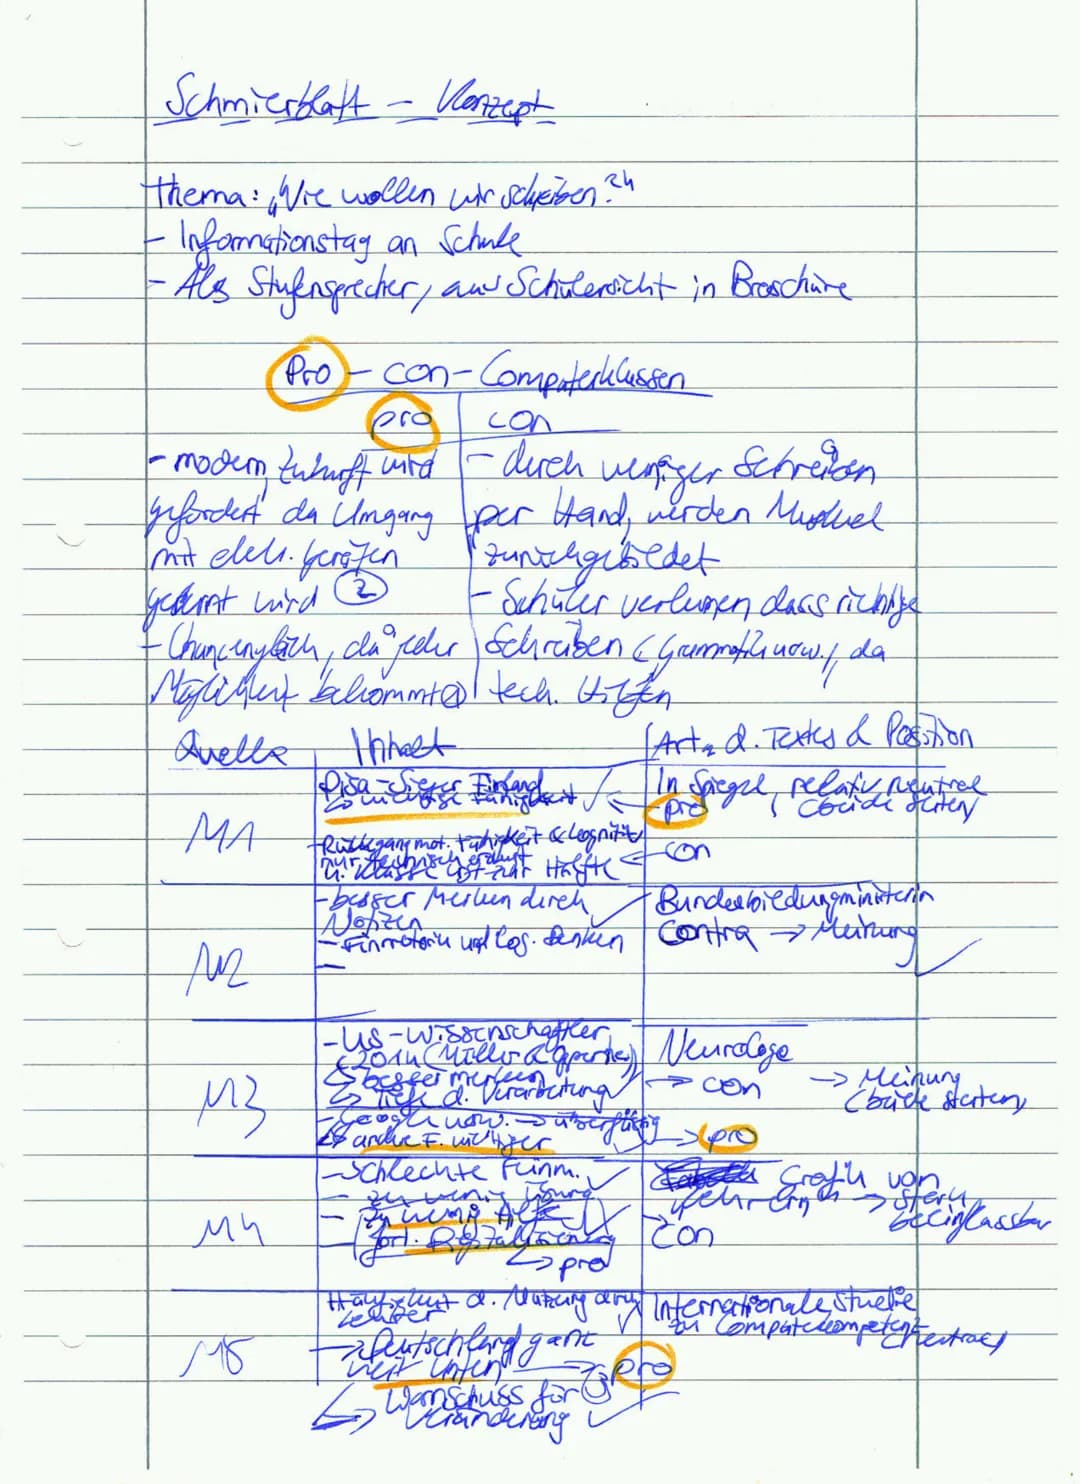 Schmierblatt - Konzept
Thema: „Wie wollen wir schreiben?"
- Informationstag an Schule
- Als Stufensprecher, aus Schülersicht in Broschüre
Pro - con - Computerklassen
pro
con
- modern, Zukunft wird
gefördert da Umgang
mit elek. Geräten
gelernt wird ②
- Chancengleich, da jeder
Möglichkeit bekommt ①
- durch weniger Schreiben
per Hand, werden Muskel
zurückgebildet
- Schüler verlernen dass richtige
Schreiben (Grammatik usw.), da
tech. Hilfen
Quelle
Inhalt
Art d. Textes & Position
M1
Pisa-Sieger Finland
wichtige Fähigkeit
- Rückgang mot. Fähigkeit & kognitiv
nur technisch
4. Klasse ist zur Hälfte
In Spiegel, relativ neutral
pro (beide Seiten)
con
M2
- besser Merken durch
Notizen
- Finmotorik und log. Denken
-
Bundesbildungministerin
Contra → Meinung
M3
- US-Wissenschaftler
2014 (Müller & Oppenheimer)
besser merken
Tiefe d. Verarbeitung
- Google usw. → überflüssig
andre F. wichtiger
Neurologe
→ con
→ Meinung
(beide Seiten)
→ pro
M4
- schlechte Feinm.
- zu wenig Übung
- zu wenig
fort. Digitalisierung
→ pro
Grafik von
Lehrern → stark
beeinflassbar
con
M5
Häufigkeit d. Nutzung durch
Lehrer
→ Deutschland ganz
weit unten → pro ③
Warnschuss für
Veränderung
Internationale Studie
zu Computerkompetenz
(neutral)